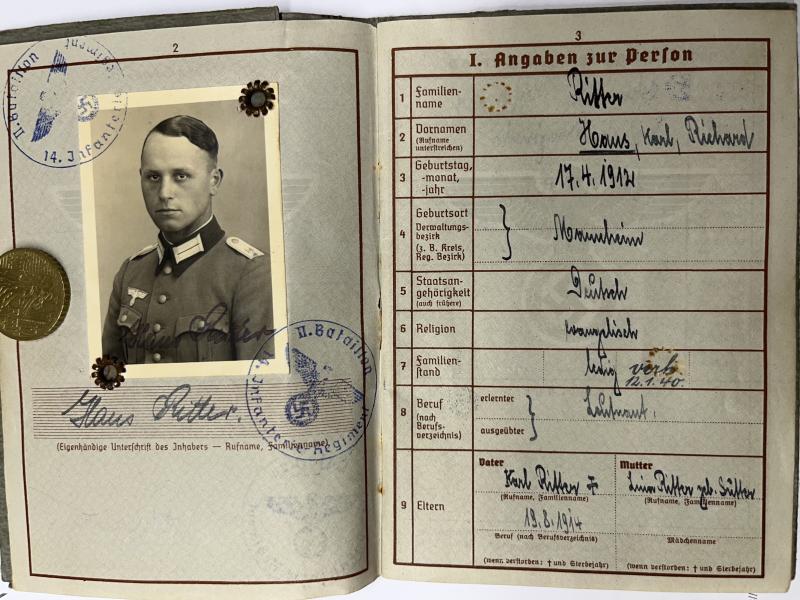 2
II. Bataillon
14. Infanterie
Hans Ritter
II. Bataillon
14. Infanterie Regiment
Hans Ritter.
(Eigenhändige Unterschrift des Inhabers — Rufname, Familienname)
3
I. Angaben zur Person
1 Familien-
name
Ritter
2 Vornamen
(Rufname
unterstreichen)
Hans, Karl, Richard
3 Geburtstag,
-monat,
-jahr
17.4.1912
4 Geburtsort
Verwaltungs-
bezirk
(z. B. Kreis,
Reg. Bezirk)
Mannheim
5 Staatsan-
gehörigkeit
(auch frühere)
Deutsch
6 Religion
evangelisch
7 Familien-
stand
ledig verh.
12.1.40.
8 Beruf
(nach
Berufs-
verzeichnis)
erlernter
ausgeübter
Leutnant.
9 Eltern
Vater
Karl Ritter †
(Rufname, Familienname)
19.8.1914
Beruf (nach Berufsverzeichnis)
(wenn verstorben: † und Sterbejahr)
Mutter
Lina Ritter geb. Sutter
(Rufname, Familienname)
Mädchenname
(wenn verstorben: † und Sterbejahr)